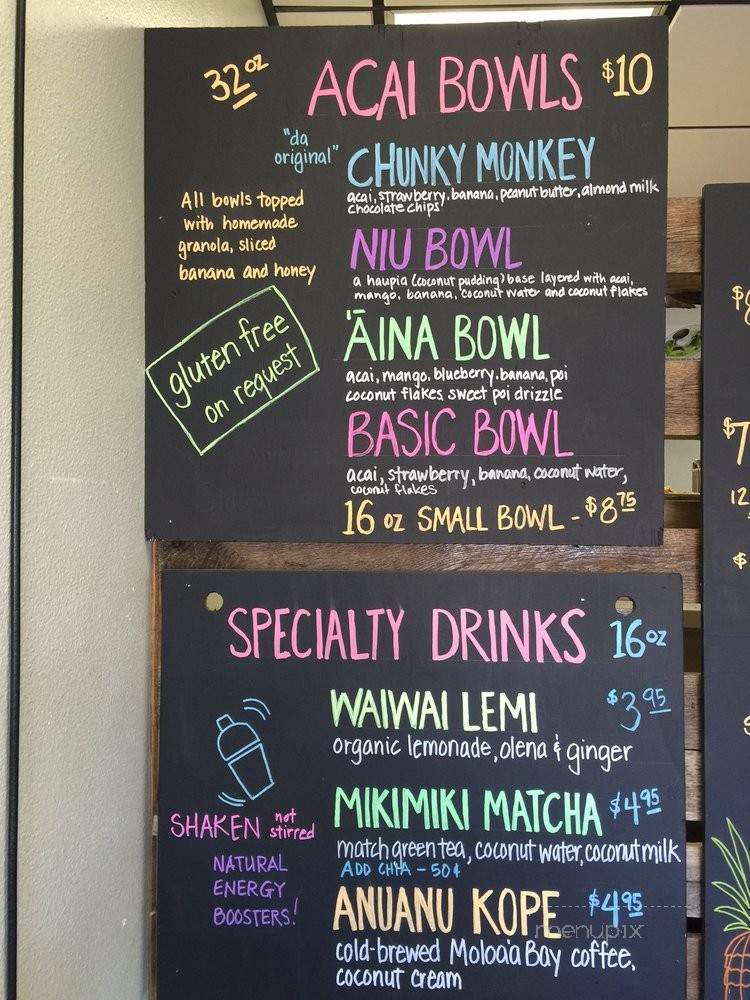 32oz ACAI BOWLS $10
"da original" CHUNKY MONKEY
acai, strawberry, banana, peanut butter, almond milk
chocolate chips
All bowls topped
with homemade
granola, sliced
banana and honey
NIU BOWL
a haupia (coconut pudding) base layered with acai,
mango, banana, coconut water and coconut flakes
gluten free
on request
'ĀINA BOWL
acai, mango, blueberry, banana, poi
coconut flakes, sweet poi drizzle
BASIC BOWL
acai, strawberry, banana, coconut water,
coconut flakes
16 oz SMALL BOWL - $8.75
SPECIALTY DRINKS 16oz
WAIWAI LEMI $3.95
organic lemonade, olena & ginger
SHAKEN not stirred
NATURAL
ENERGY
BOOSTERS!
MIKIMIKI MATCHA $4.95
match green tea, coconut water, coconut milk
ADD CHIA - 50¢
ANUANU KOPE $4.95
cold-brewed Moloa'a Bay coffee,
coconut cream
menupix
$7
12
$